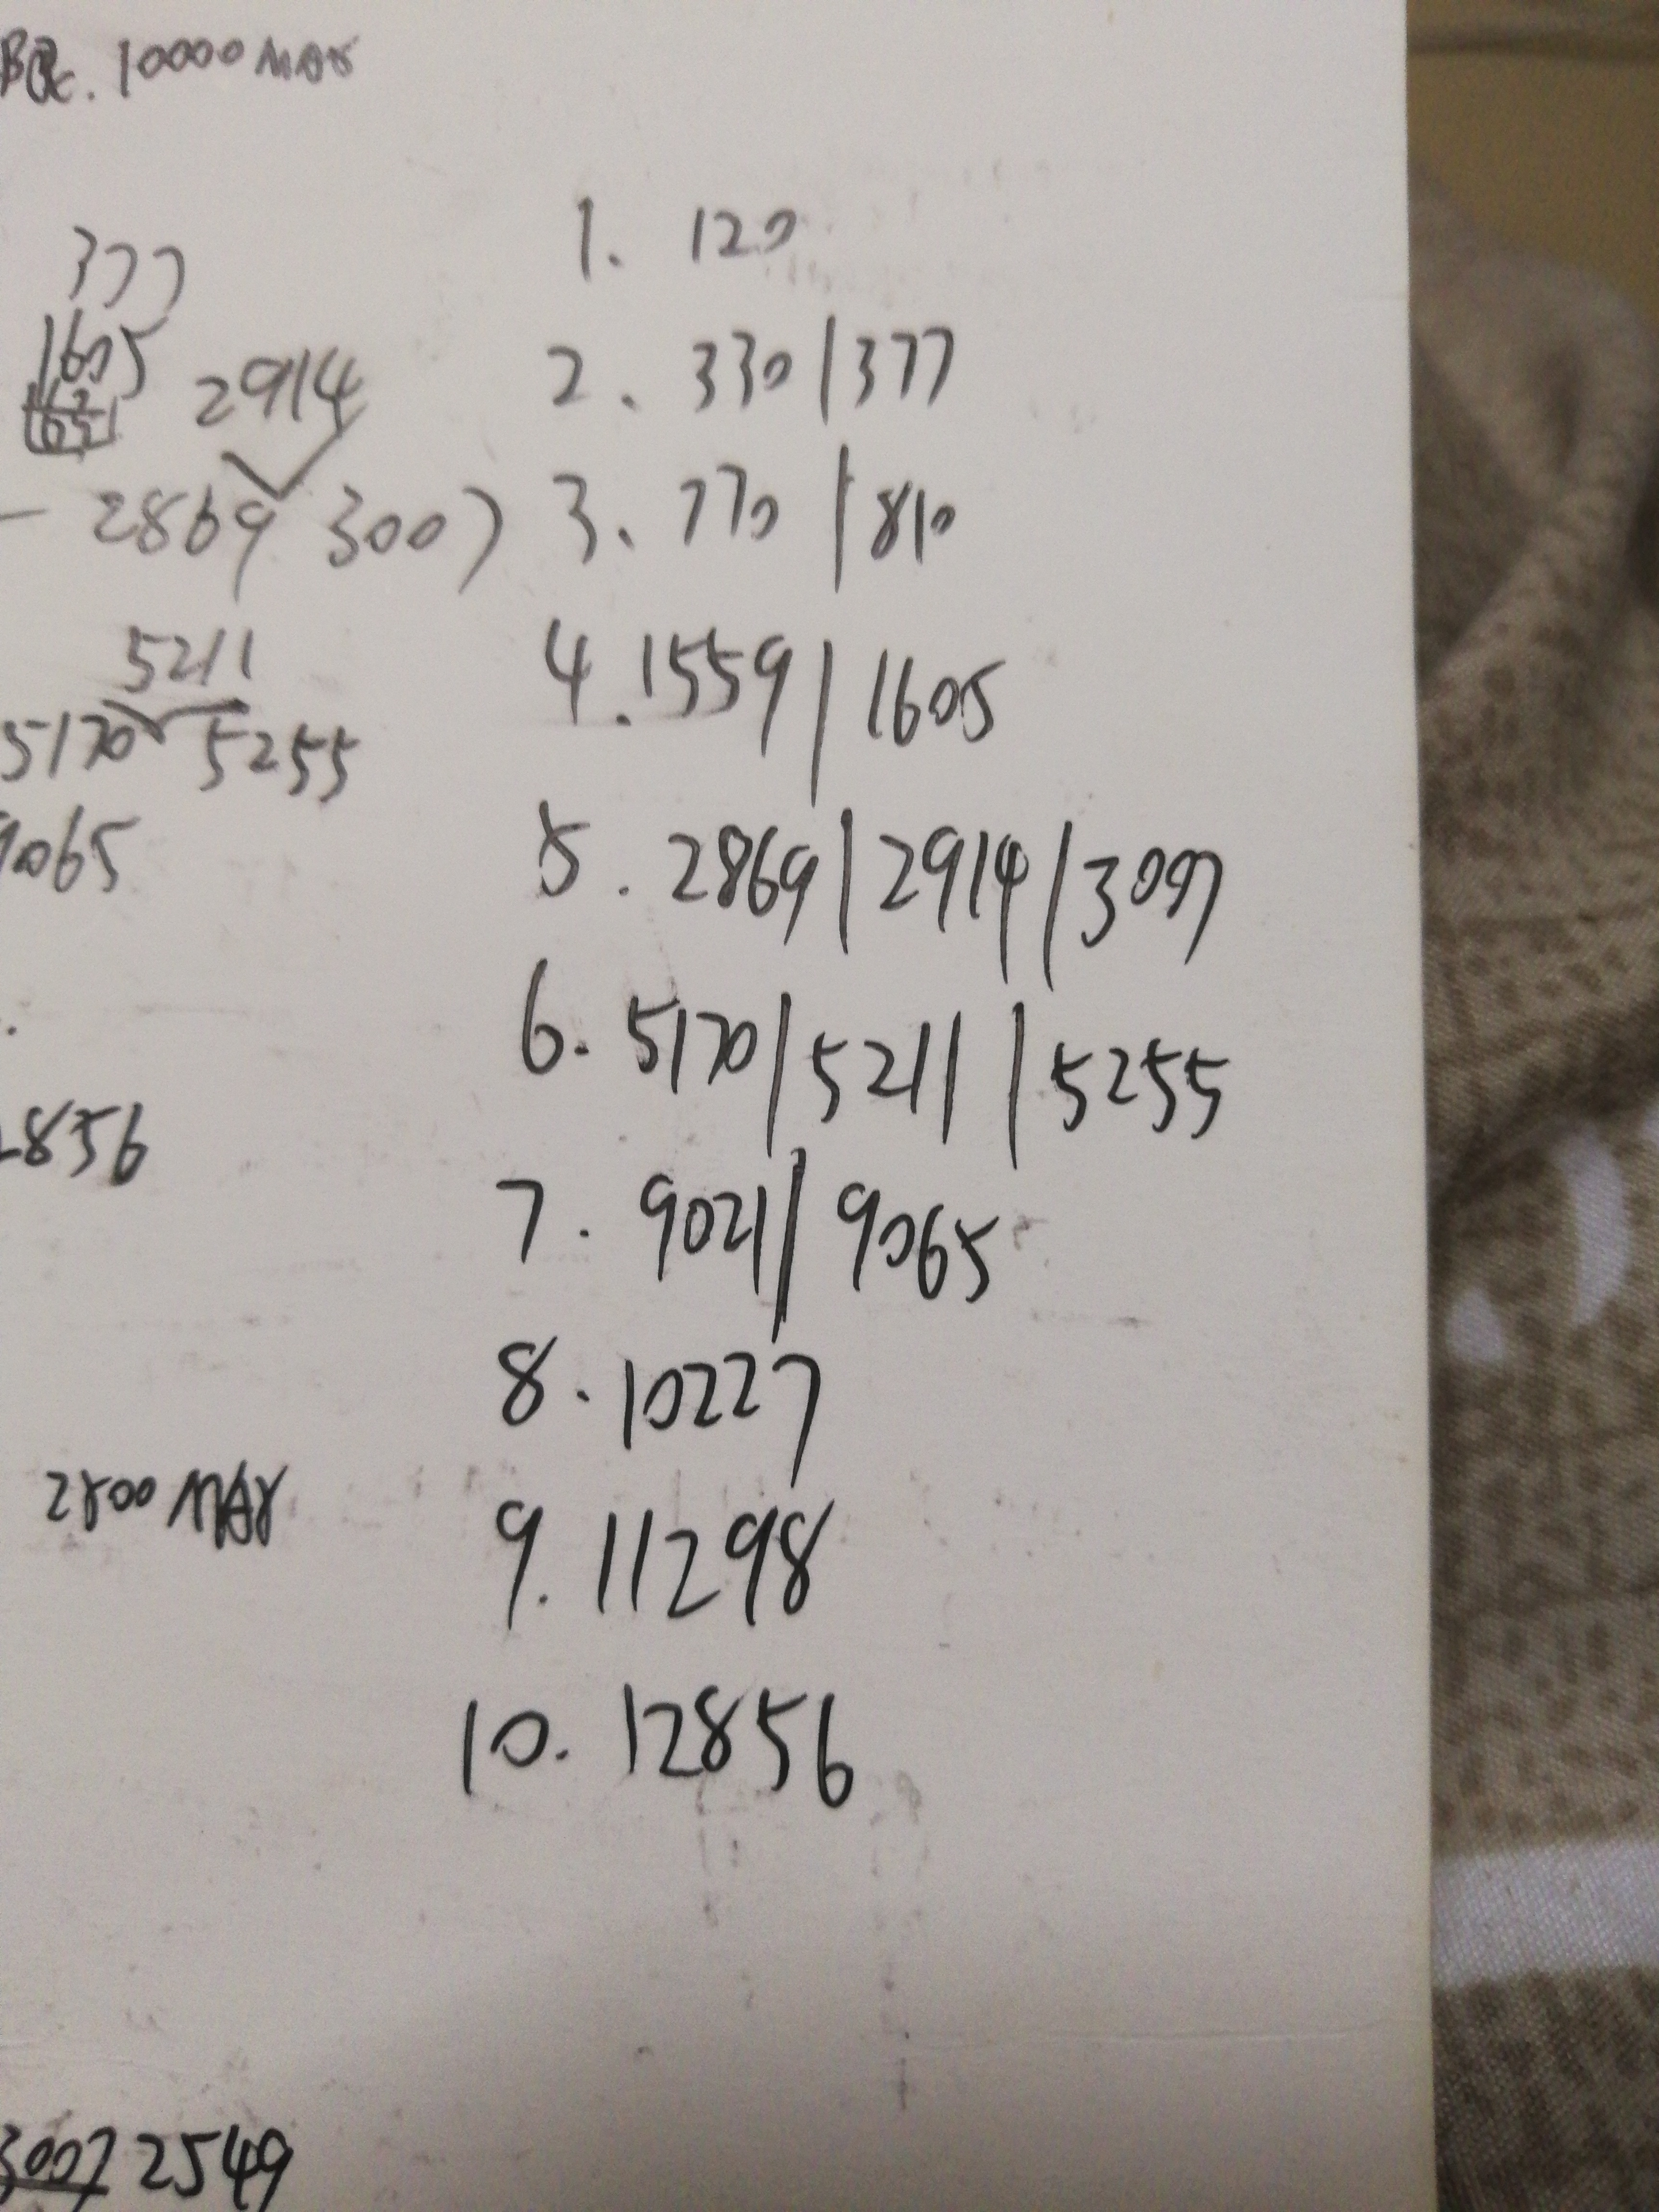 10000 MAX
377
1605
2914
2869 3007
5211
5170 5255
9065
2856
2800 MAX
3007 2549
1. 120
2. 330/377
3. 770/810
4. 1559/1605
5. 2869/2914/3007
6. 5170/5211/5255
7. 9021/9065
8. 10227
9. 11298
10. 12856